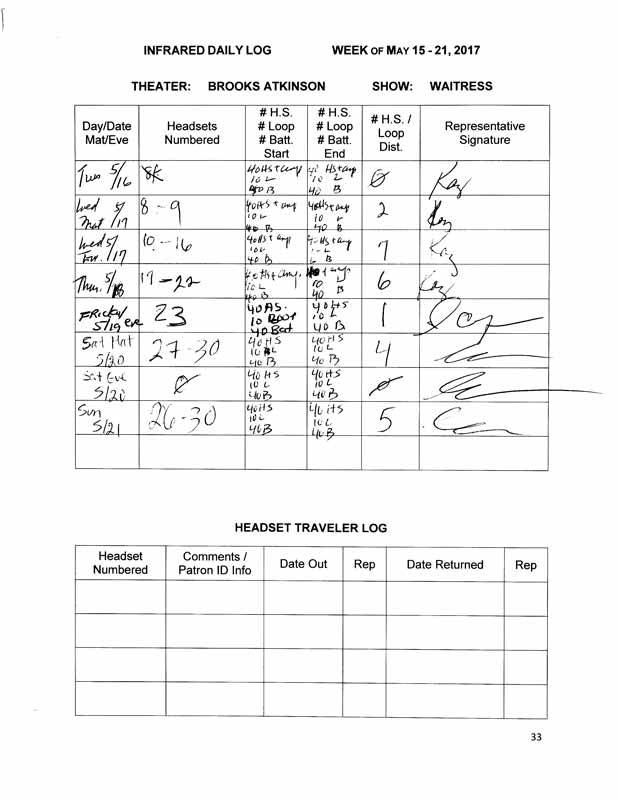 INFRARED DAILY LOG WEEK OF MAY 15 - 21, 2017
THEATER: BROOKS ATKINSON SHOW: WAITRESS
Day/Date Mat/Eve
Headsets Numbered
# H.S. # Loop # Batt. Start
# H.S. # Loop # Batt. End
# H.S. / Loop Dist.
Representative Signature
Tues 5/16 40 HS + amp 10 L 40 B 40 HS + amp 10 L 40 B 0 Kay
Wed Mat 5/17 8 - 9 40 HS + amp 10 L 40 B 40 HS + amp 10 L 40 B 2 Kay
Wed 5/17 10 - 16 40 HS + amp 10 L 40 B HS + amp L B 7 Kay
Thu. 5/18 17 - 22 HS + amp. 10 L 40 B + amp. 10 L 40 B 6 Kay
FRIDAY 5/19 eve 23 40 HS. 10 Loop 40 Bat 40 HS 10 L 40 B 1
Sat Mat 5/20 27 - 30 40 HS 10 L 40 B 40 HS 10 L 40 B 4
Sat Eve 5/20 0 40 HS 10 L 40 B 40 HS 10 L 40 B 0
Sun 5/21 26 - 30 40 HS 10 L 40 B 40 HS 10 L 40 B 5
HEADSET TRAVELER LOG
Headset Numbered
Comments / Patron ID Info
Date Out
Rep
Date Returned
Rep
33